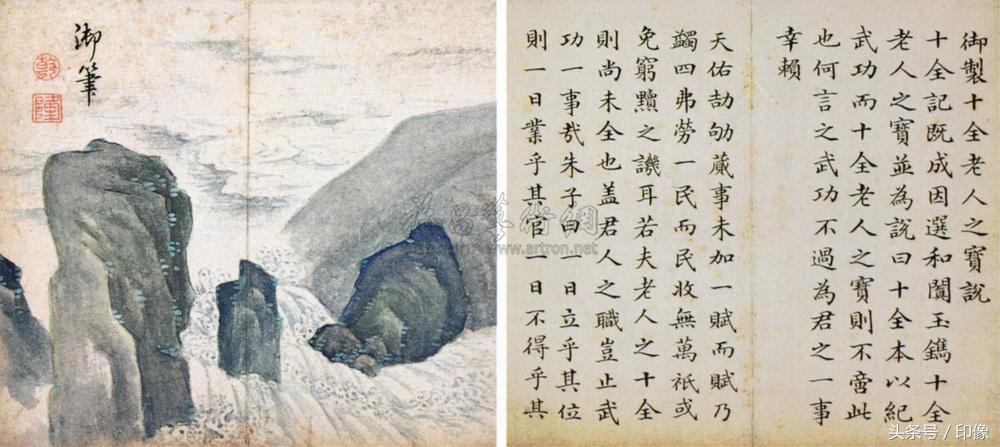 御筆
乾
隆
御製十全老人之寶說
十全記既成因選和闐玉鐫十全
老人之寶並為說曰十全本以紀
武功而十全老人之寶則不啻此
也何言之武功不過為君之一事
幸賴
天佑劼劬蕆事未加一賦而賦乃
蠲四弗勞一民而民收無萬祇或
免窮黷之譏耳若夫老人之十全
則尚未全也盖君人之職豈止武
功一事哉朱子曰一日立乎其位
則一日業乎其官一日不得乎其
雅昌藝術網
www.artron.net
头条号 / 印像